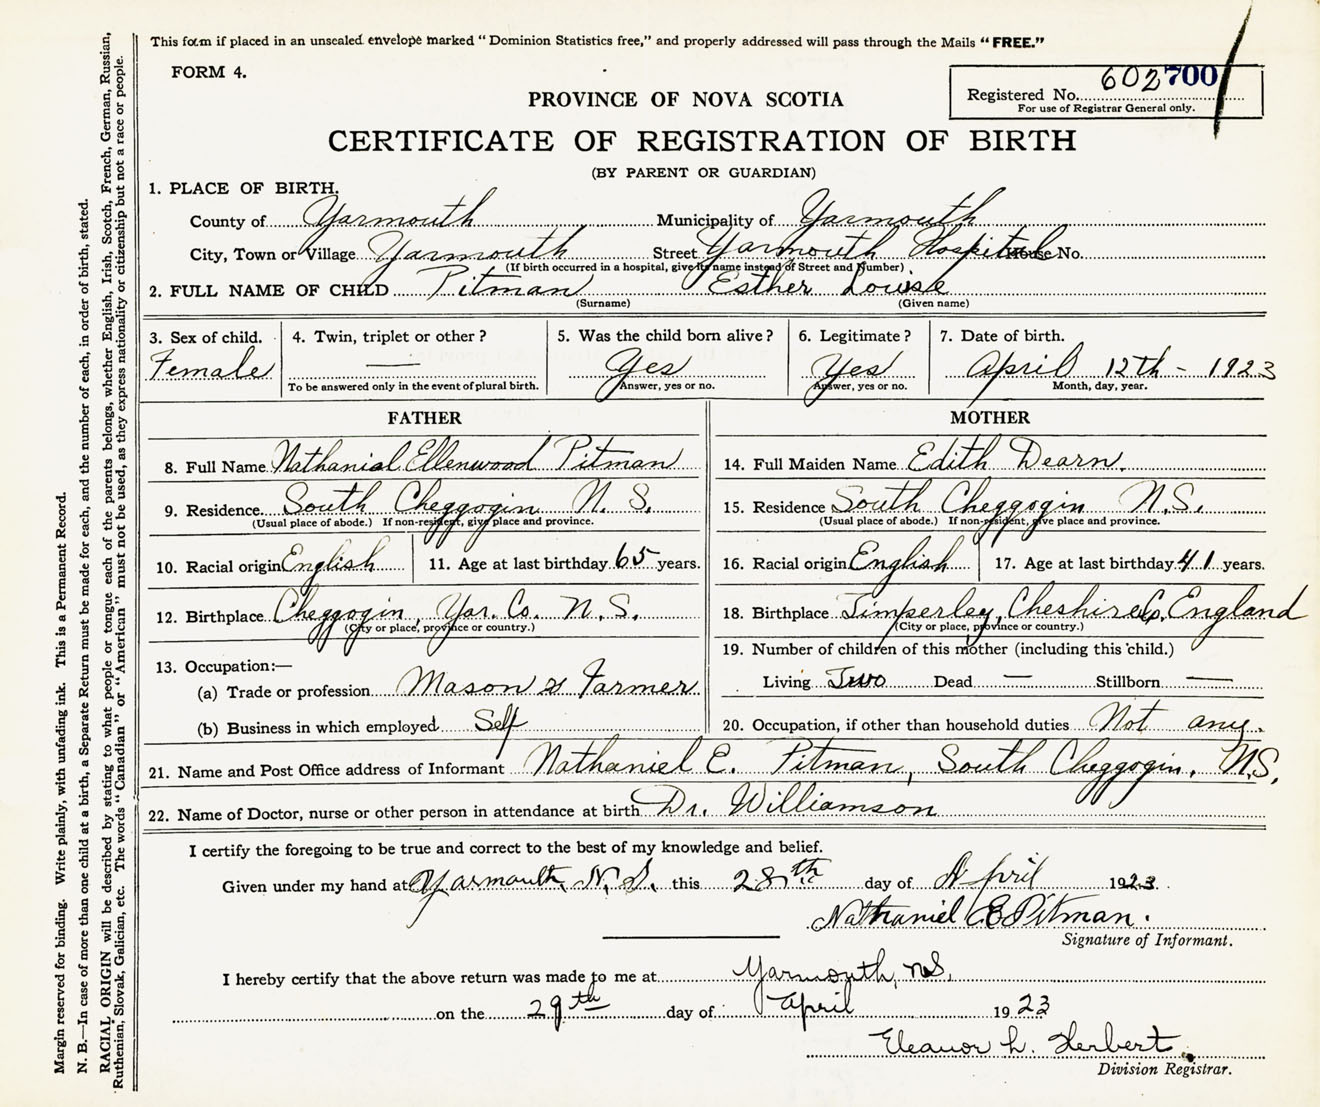 This form if placed in an unsealed envelope marked "Dominion Statistics free," and properly addressed will pass through the Mails "FREE."
FORM 4.
602700
Registered No.
For use of Registrar General only.
PROVINCE OF NOVA SCOTIA
CERTIFICATE OF REGISTRATION OF BIRTH
(BY PARENT OR GUARDIAN)
1. PLACE OF BIRTH.
County of Yarmouth Municipality of Yarmouth
City, Town or Village Yarmouth Street Yarmouth Hospital House No.
(If birth occurred in a hospital, give its name instead of Street and Number)
2. FULL NAME OF CHILD Pitman Esther Louise
(Surname) (Given name)
3. Sex of child. 4. Twin, triplet or other? 5. Was the child born alive? 6. Legitimate? 7. Date of birth.
Female — Yes Yes April 12th - 1923
To be answered only in the event of plural birth. Answer, yes or no. Answer, yes or no. Month, day, year.
FATHER MOTHER
8. Full Name Nathanial Ellenwood Pitman 14. Full Maiden Name Edith Dearn.
9. Residence. South Cheggogin N. S. 15. Residence South Cheggogin N.S.
(Usual place of abode.) If non-resident, give place and province. (Usual place of abode.) If non-resident, give place and province.
10. Racial origin English 11. Age at last birthday 65 years. 16. Racial origin English 17. Age at last birthday 41 years.
12. Birthplace Cheggogin, Yar. Co. N.S. 18. Birthplace Timperley, Cheshire Co, England
(City or place, province or country.) (City or place, province or country.)
19. Number of children of this mother (including this child.)
13. Occupation:—
(a) Trade or profession Mason & Farmer Living Two Dead — Stillborn —
(b) Business in which employed Self 20. Occupation, if other than household duties Not any.
21. Name and Post Office address of Informant Nathaniel E. Pitman, South Cheggogin, N.S.
22. Name of Doctor, nurse or other person in attendance at birth Dr. Williamson
I certify the foregoing to be true and correct to the best of my knowledge and belief.
Given under my hand at Yarmouth, N.S. this 28th day of April 1923.
Nathaniel E Pitman.
Signature of Informant.
I hereby certify that the above return was made to me at Yarmouth, N.S.
on the 29th day of April 1923
Eleanor L. Herbert.
Division Registrar.
Margin reserved for binding. Write plainly, with unfading ink. This is a Permanent Record.
N. B.—In case of more than one child at a birth, a Separate Return must be made for each, and the number of each, in order of birth, stated.
RACIAL ORIGIN will be described by stating to what people or tongue each of the parents belongs, whether English, Irish, Scotch, French, German, Russian,
Ruthenian, Slovak, Galician, etc. The words "Canadian" or "American" must not be used, as they express nationality or citizenship but not a race or people.